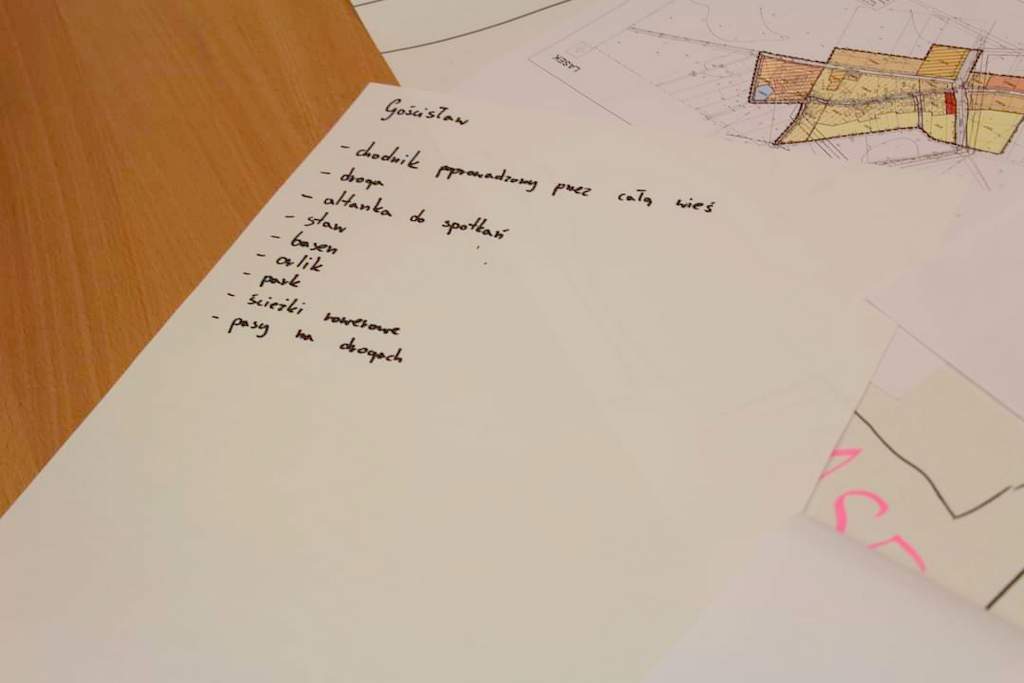 Gościsław
- chodnik poprowadzony przez całą wieś
- droga
- altanka do spotkań
- staw
- basen
- orlik
- park
- ścieżki rowerowe
- pasy na drogach
LASEK